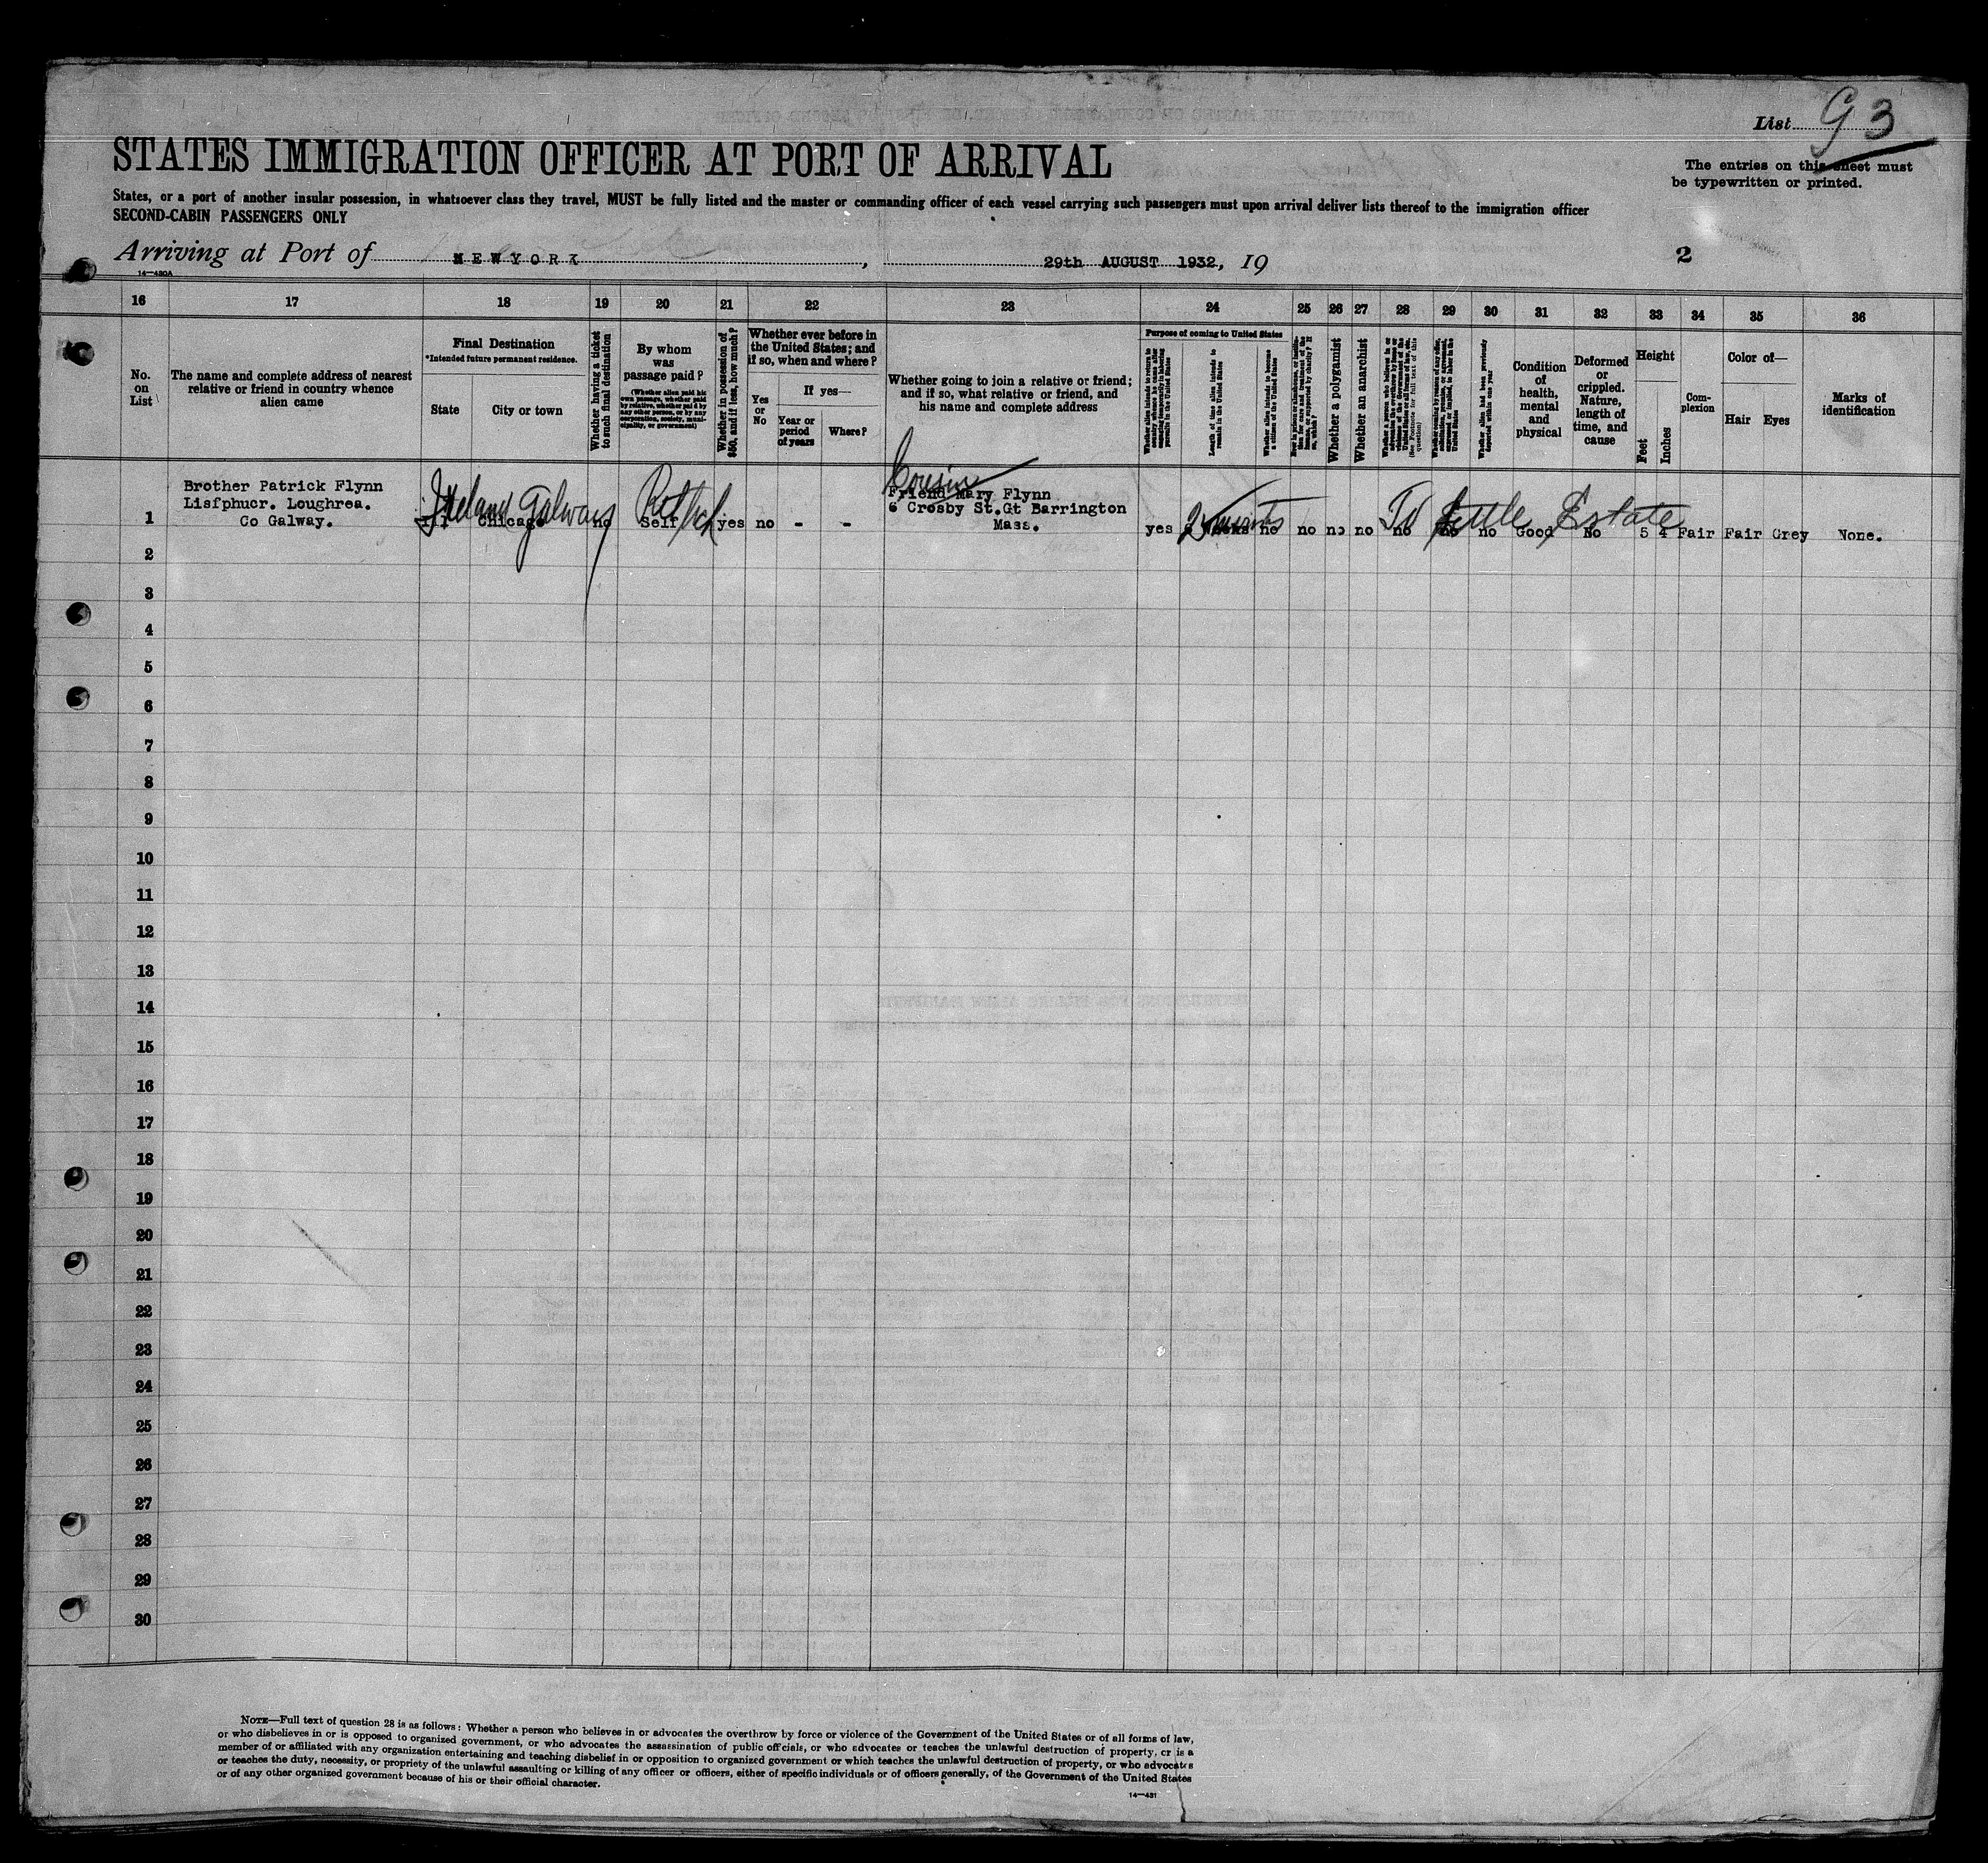 List G3
STATES IMMIGRATION OFFICER AT PORT OF ARRIVAL
The entries on this sheet must
be typewritten or printed.
States, or a port of another insular possession, in whatsoever class they travel, MUST be fully listed and the master or commanding officer of each vessel carrying such passengers must upon arrival deliver lists thereof to the immigration officer
SECOND-CABIN PASSENGERS ONLY
Arriving at Port of NEWYORK, 29th AUGUST 1932, 19
2
14—430A
16 17 18 19 20 21 22 23 24 25 26 27 28 29 30 31 32 33 34 35 36
No. on List
The name and complete address of nearest
relative or friend in country whence
alien came
Final Destination
*Intended future permanent residence.
State
City or town
Whether having a ticket
to such final destination
By whom
was
passage paid?
(Whether alien paid his
own passage, whether paid
by relative, whether paid by
any other person, or by any
corporation, society, muni-
cipality, or government)
Whether in possession of
$50, and if less, how much?
Whether ever before in
the United States; and
if so, when and where?
Yes
or
No
If yes—
Year or
period
of years
Where?
Whether going to join a relative or friend;
and if so, what relative or friend, and
his name and complete address
Purpose of coming to United States
Length of time alien intends to
remain in the United States
Whether alien intends to become
a citizen of the United States
Whether a polygamist
Whether an anarchist
Whether alien had been previously
deported within one year
Condition
of
health,
mental
and
physical
Deformed
or
crippled.
Nature,
length of
time, and
cause
Height
Feet
Inches
Com-
plexion
Color of—
Hair Eyes
Marks of
identification
Cousin
Brother Patrick Flynn
Lisfphucr. Loughrea.
Co Galway.
Ireland Galway
Ill Chicago no Self yes no - -
Friend Mary Flynn
6 Crosby St.Gt Barrington
Mass.
To Settle Estate
yes no no no no no no no Good No 5 4 Fair Fair Grey None.
1
2
3
4
5
6
7
8
9
10
11
12
13
14
15
16
17
18
19
20
21
22
23
24
25
26
27
28
29
30
NOTE—Full text of question 28 is as follows: Whether a person who believes in or advocates the overthrow by force or violence of the Government of the United States or of all forms of law,
or who disbelieves in or is opposed to organized government, or who advocates the assassination of public officials, or who advocates or teaches the unlawful destruction of property, or is a
member of or affiliated with any organization entertaining and teaching disbelief in or opposition to organized government or which teaches the unlawful destruction of property, or who advocates
or teaches the duty, necessity, or propriety of the unlawful assaulting or killing of any officer or officers, either of specific individuals or of officers generally, of the Government of the United States
or of any other organized government because of his or their official character.
14—431